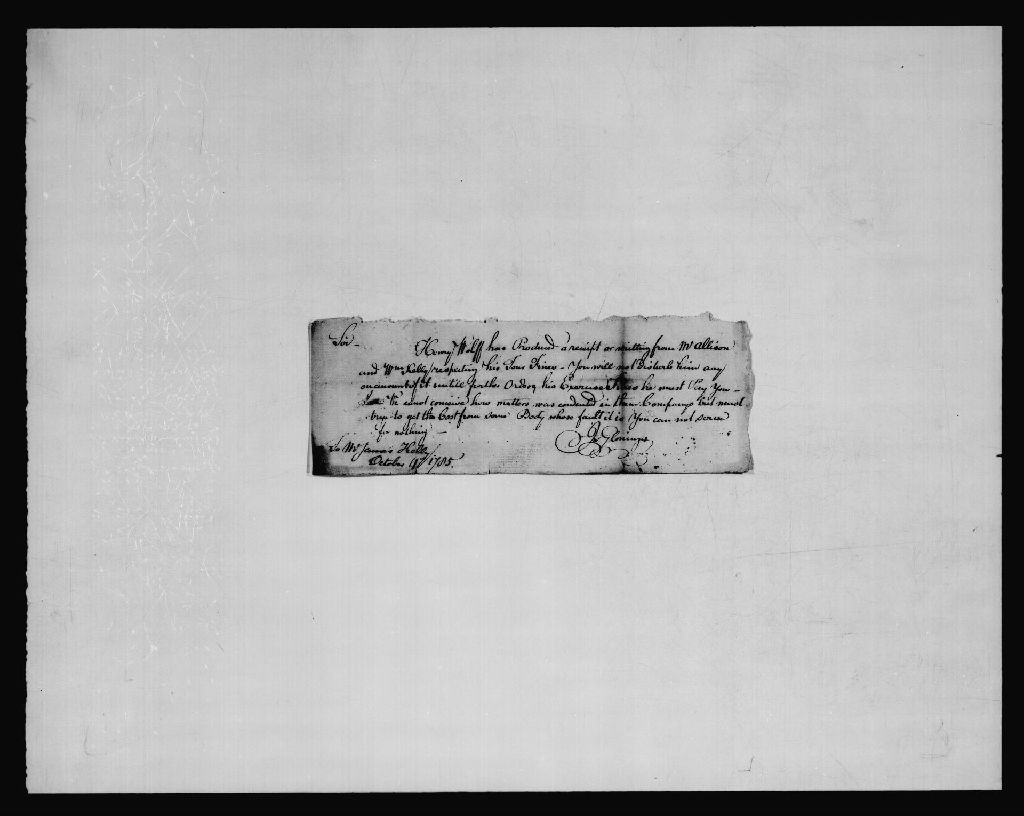 Sir -
Henry Wolff has Produced a receipt or writting from Mr Allison
and Wm Kelly respecting his Tour Fines - You will not Disturb him any
on account of it untill further Orders his Exercise Fines he must Pay you -
I cannot conceive how matters was conducted in them Companys but must
try to get the Cost from some Body whose fault it is You can not serve
for nothing -
J. Gloninger
To Mr James Kelly
October 1785.